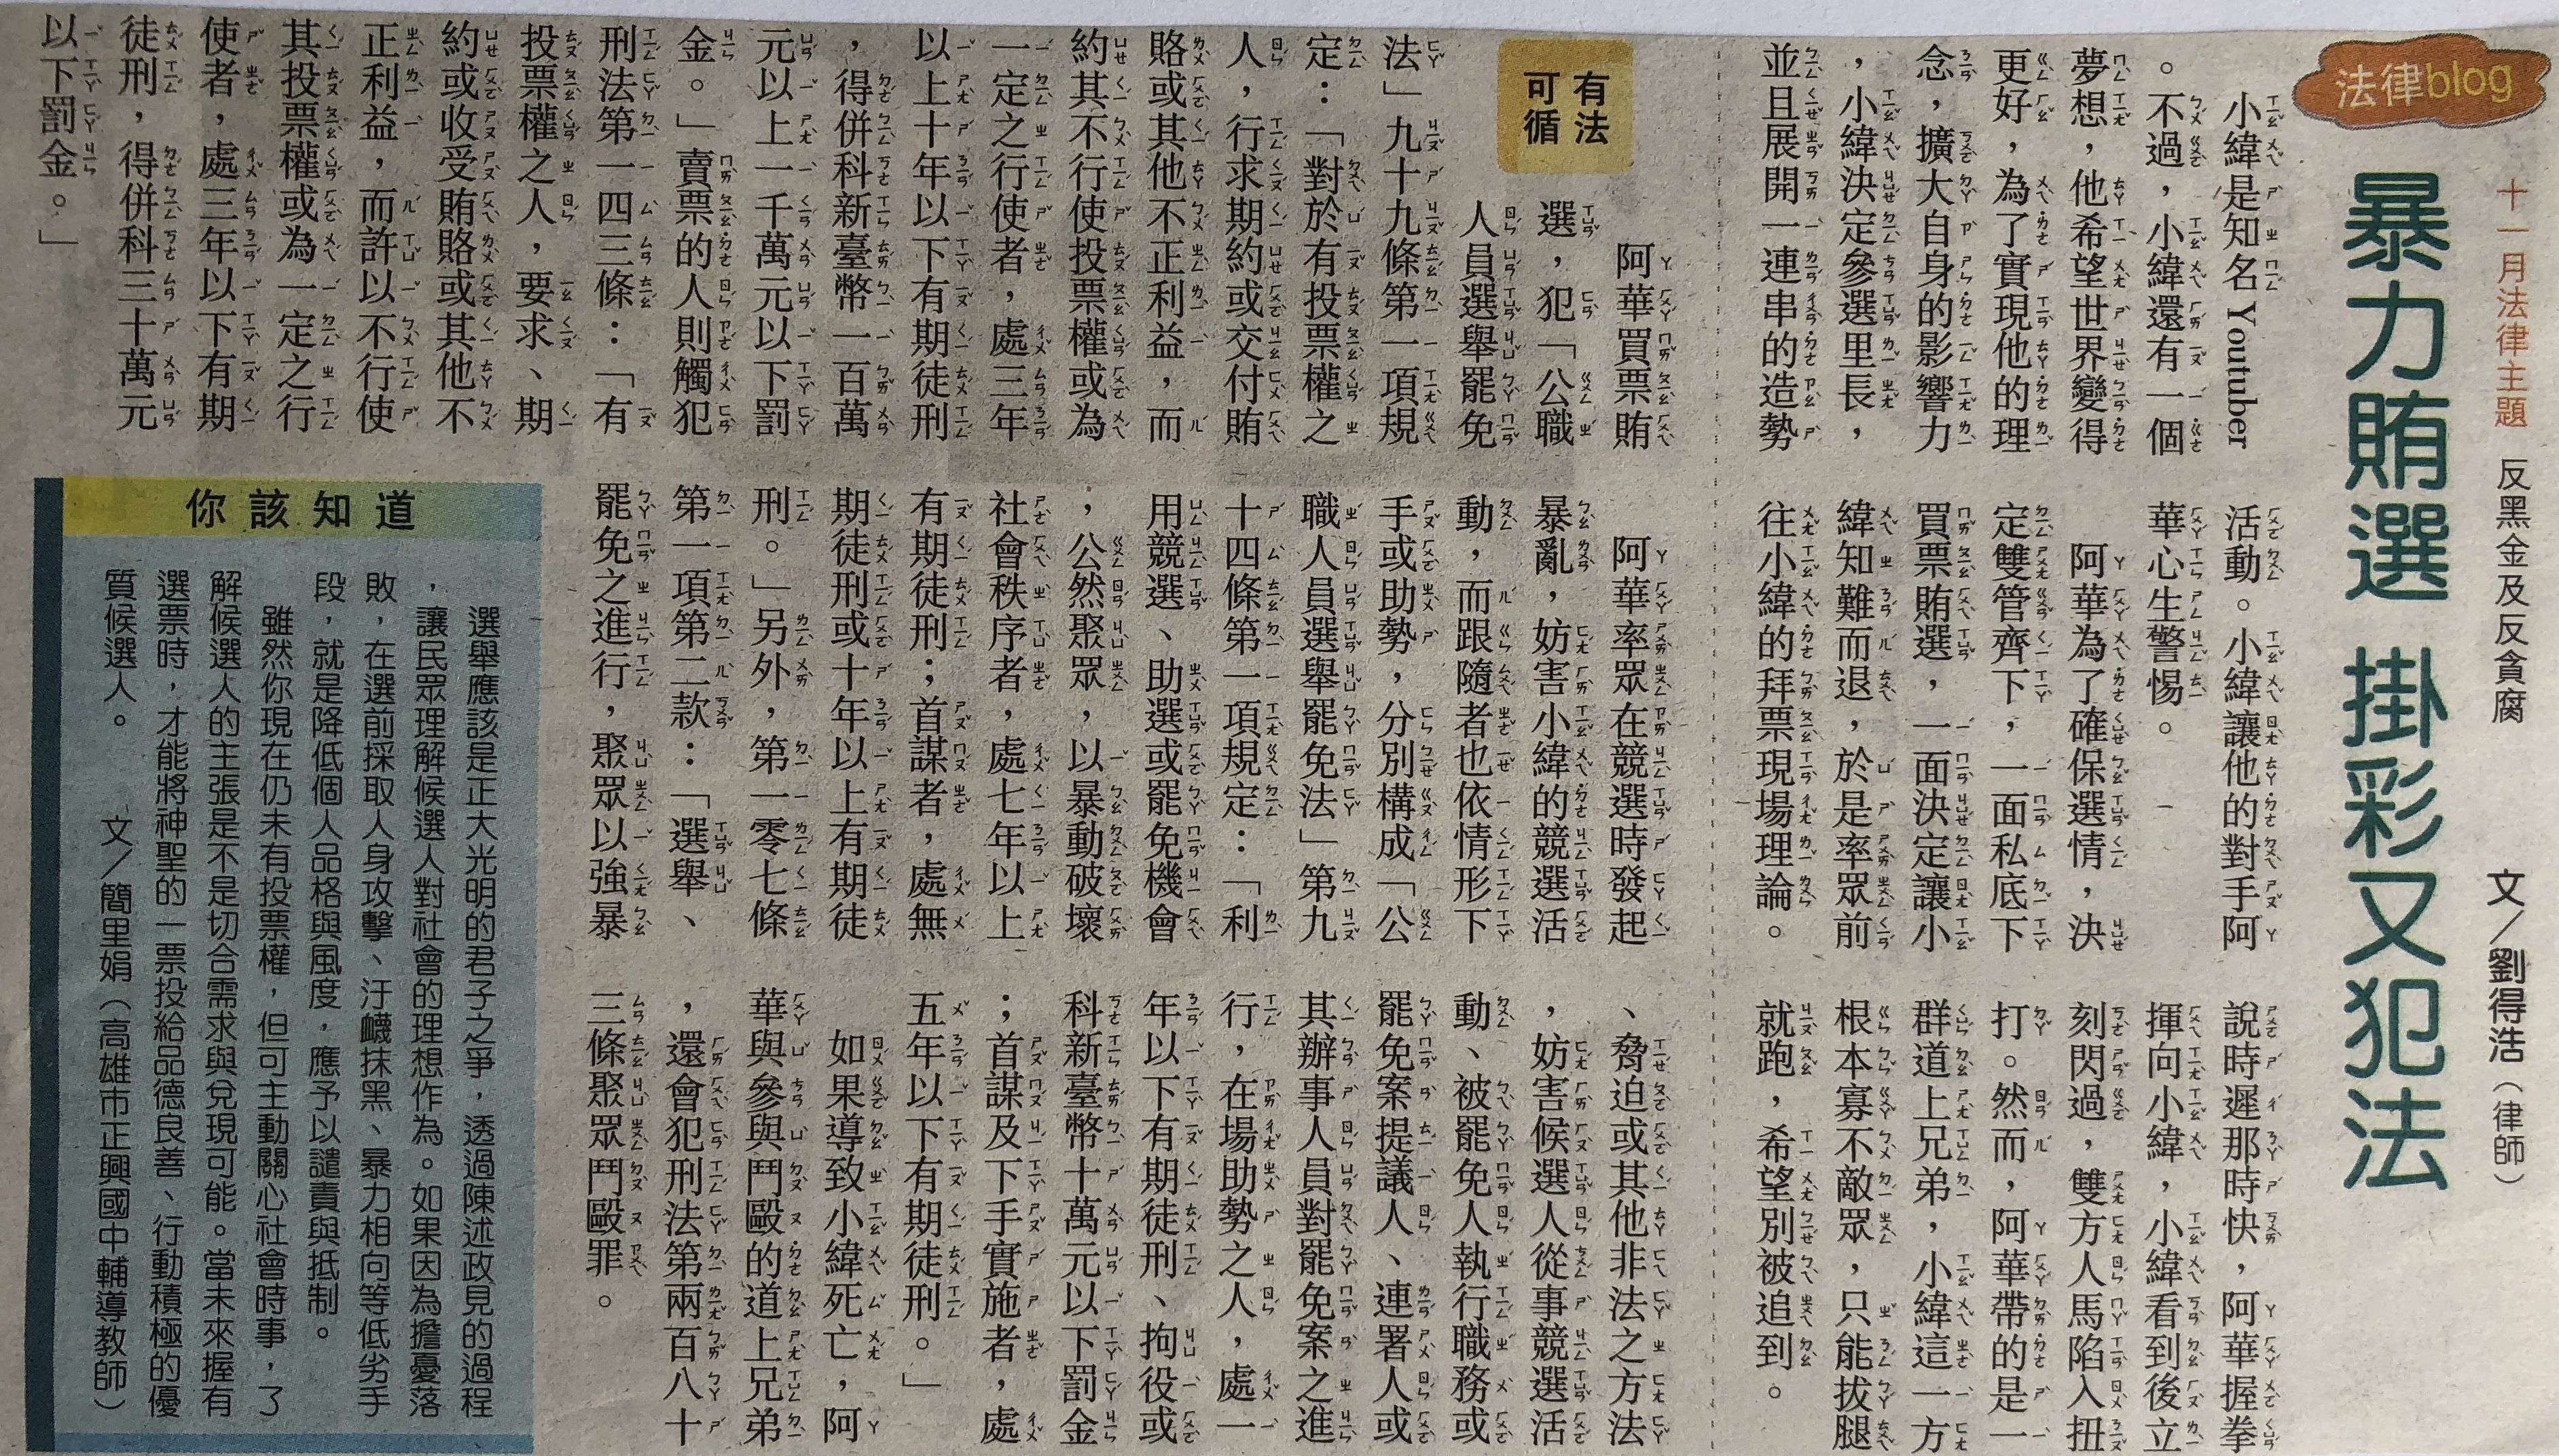 法律blog
十一月法律主題 反黑金及反貪腐
文／劉得浩（律師）
暴力賄選 掛彩又犯法
小緯是知名Youtuber
。不過，小緯還有一個
夢想，他希望世界變得
更好，為了實現他的理
念，擴大自身的影響力
，小緯決定參選里長，
並且展開一連串的造勢
活動。小緯讓他的對手阿
華心生警惕。
阿華為了確保選情，決
定雙管齊下，一面私底下
買票賄選，一面決定讓小
緯知難而退，於是率眾前
往小緯的拜票現場理論。
說時遲那時快，阿華握拳
揮向小緯，小緯看到後立
刻閃過，雙方人馬陷入扭
打。然而，阿華帶的是一
群道上兄弟，小緯這一方
根本寡不敵眾，只能拔腿
就跑，希望別被追到。
有法
可循
阿華買票賄
選，犯「公職
人員選舉罷免
法」九十九條第一項規
定：「對於有投票權之
人，行求期約或交付賄
賂或其他不正利益，而
約其不行使投票權或為
一定之行使者，處三年
以上十年以下有期徒刑
，得併科新臺幣一百萬
元以上一千萬元以下罰
金。」賣票的人則觸犯
刑法第一四三條：「有
投票權之人，要求、期
約或收受賄賂或其他不
正利益，而許以不行使
其投票權或為一定之行
使者，處三年以下有期
徒刑，得併科三十萬元
以下罰金。」
阿華率眾在競選時發起
暴亂，妨害小緯的競選活
動，而跟隨者也依情形下
手或助勢，分別構成「公
職人員選舉罷免法」第九
十四條第一項規定：「利
用競選、助選或罷免機會
，公然聚眾，以暴動破壞
社會秩序者，處七年以上
有期徒刑；首謀者，處無
期徒刑或十年以上有期徒
刑。」另外，第一零七條
第一項第二款：「選舉、
罷免之進行，聚眾以強暴
、脅迫或其他非法之方法
，妨害候選人從事競選活
動、被罷免人執行職務或
罷免案提議人、連署人或
其辦事人員對罷免案之進
行，在場助勢之人，處一
年以下有期徒刑、拘役或
科新臺幣十萬元以下罰金
；首謀及下手實施者，處
五年以下有期徒刑。」
如果導致小緯死亡，阿
華與參與鬥毆的道上兄弟
，還會犯刑法第兩百八十
三條聚眾鬥毆罪。
你該知道
選舉應該是正大光明的君子之爭，透過陳述政見的過程
，讓民眾理解候選人對社會的理想作為。如果因為擔憂落
敗，在選前採取人身攻擊、汙衊抹黑、暴力相向等低劣手
段，就是降低個人品格與風度，應予以譴責與抵制。
雖然你現在仍未有投票權，但可主動關心社會時事，了
解候選人的主張是不是切合需求與兌現可能。當未來握有
選票時，才能將神聖的一票投給品德良善、行動積極的優
質候選人。 文／簡里娟（高雄市正興國中輔導教師）